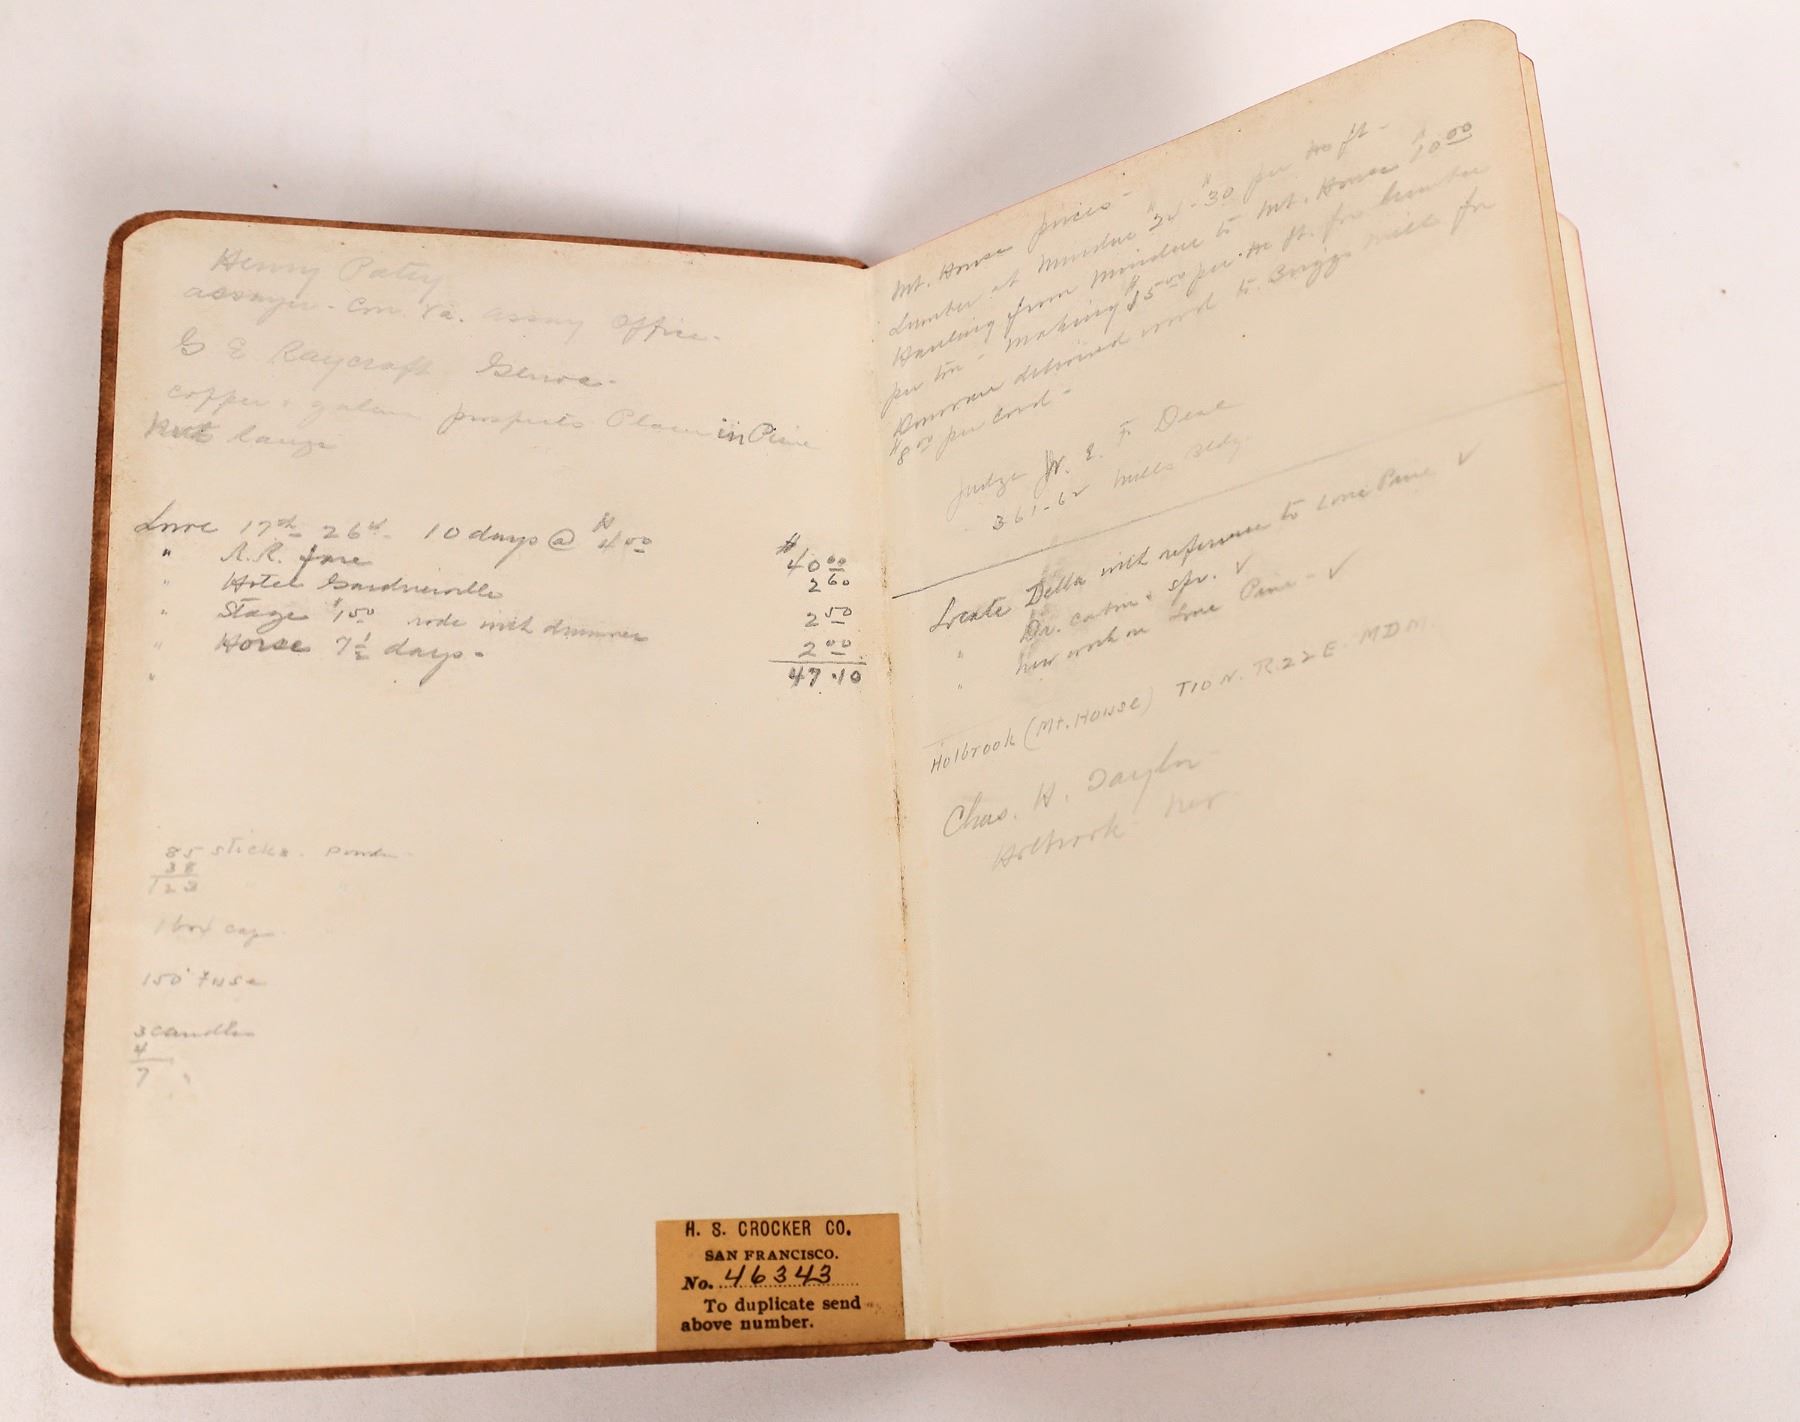 Henry Patry
assayer - Con. Va. assay office -
G E Raycroft Genoa -
copper & galena prospects in Pine
Nut Range
17th 26th - 10 days @ $4 00 $40 00
" R.R. fare 2 60
" Hotel Gardnerville 2 50
" Stage $1 50 rode with drummer 2 00
" Horse 7 1/2 days -
" 47.10
85 sticks powder
38
123
1 box caps
150' Fuse
3 candles
4
7
H. S. CROCKER CO.
SAN FRANCISCO.
No. 46343
To duplicate send
above number.
Mt. House prices -
Lumber at Minden $30 per m ft -
Hauling from Minden to Mt. House $10 00
per ton - making $5 00 per m ft. for lumber
delivered wood to Briggs mill for
$8 00 per cord -
Judge W. E. F. Deal
361-62 Mills Bldg.
Locate Della with reference to Lone Pine ✓
" Dr. cabin & spr. ✓
" new work on Lone Pine - ✓
Holbrook (Mt. House) T10N. R22E. MDM.
Chas. H. Taylor
Holbrook Nev.